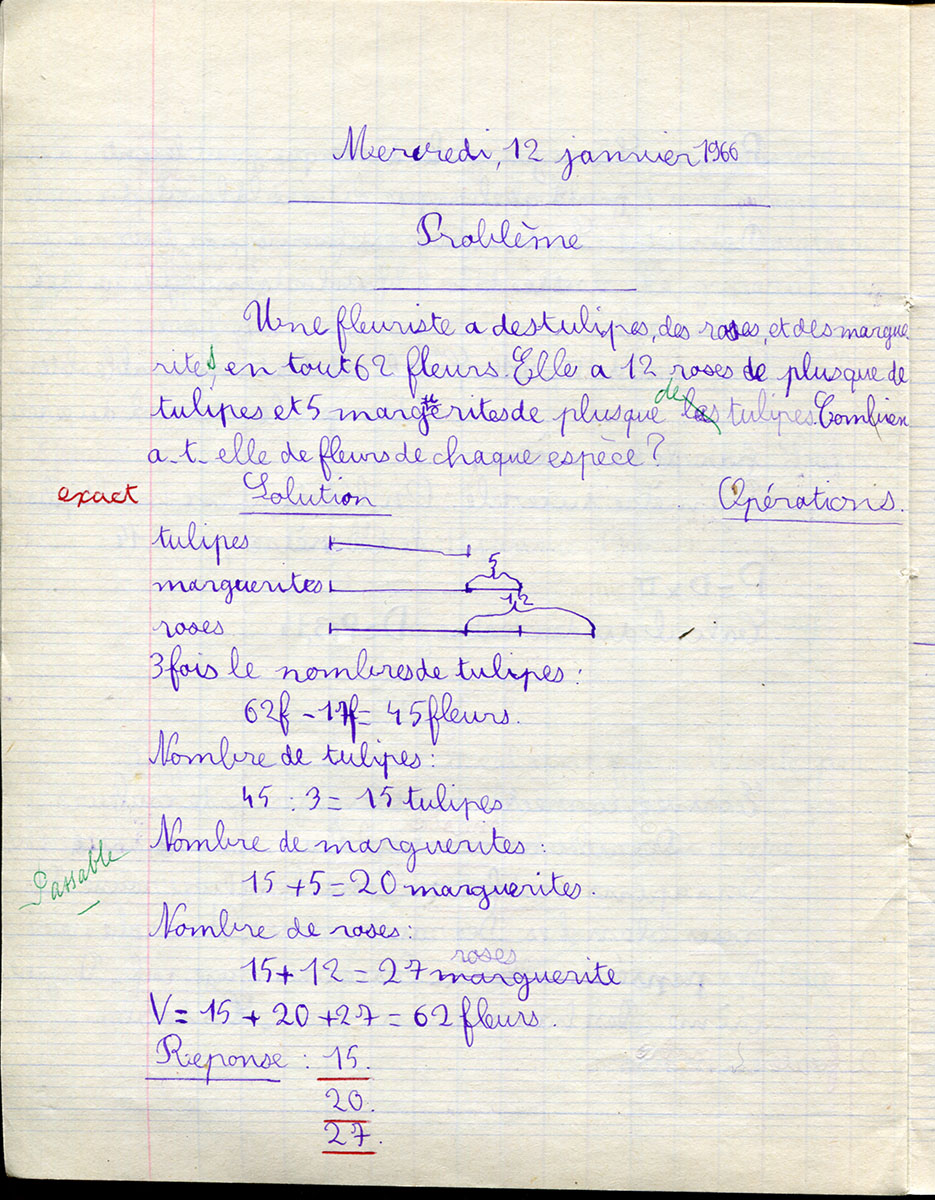 Mercredi, 12 janvier 1966
Problème
Une fleuriste a des tulipes, des roses, et des margue
rites, en tout 62 fleurs. Elle a 12 roses de plus que de
tulipes et 5 marguerites de plus que de les tulipes. Combien
a-t-elle de fleurs de chaque espèce ?
exact Solution Opérations.
tulipes
5
marguerites
12
roses
3 fois le nombres de tulipes :
62f - 17f = 45 fleurs.
Nombre de tulipes :
45 : 3 = 15 tulipes
Nombre de marguerites :
Passable
15 + 5 = 20 marguerites.
Nombre de roses :
roses
15 + 12 = 27 marguerite
V = 15 + 20 + 27 = 62 fleurs.
Reponse : 15.
20.
27.